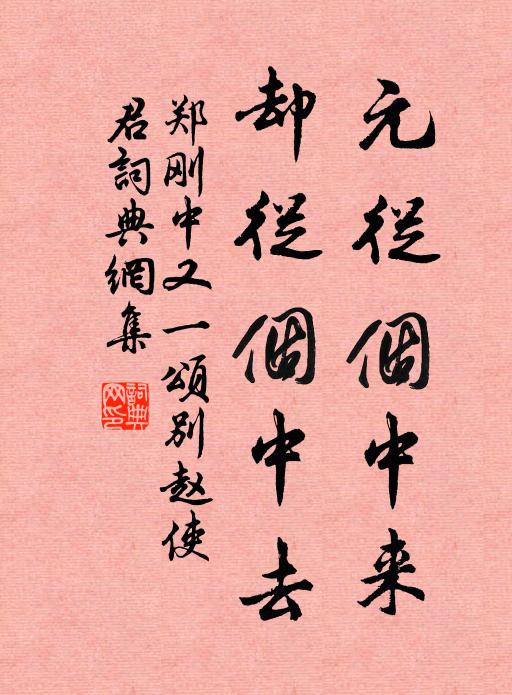 元從個中来
却從個中去
郑刚中又一頌别赵使
君詞典網集
詞典
网印